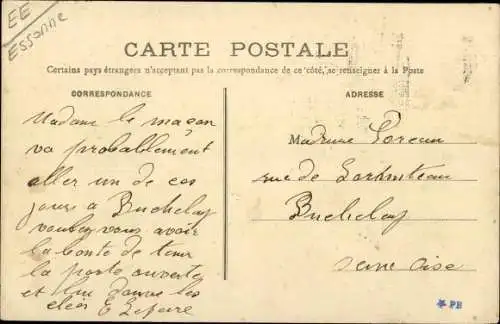 EE
Essonne
CARTE POSTALE
Certains pays étrangers n'acceptent pas la correspondance de ce côté, se renseigner à la Poste
CORRESPONDANCE
ADRESSE
Madame le maçon
va probablement
aller un de ces
jours a Buchelay
voulez vous avoir
la bonté de tenir
la porte ouverte
et lui donner les
clés E Lefevre
Madame
rue de
Buchelay
Seine Oise
PB